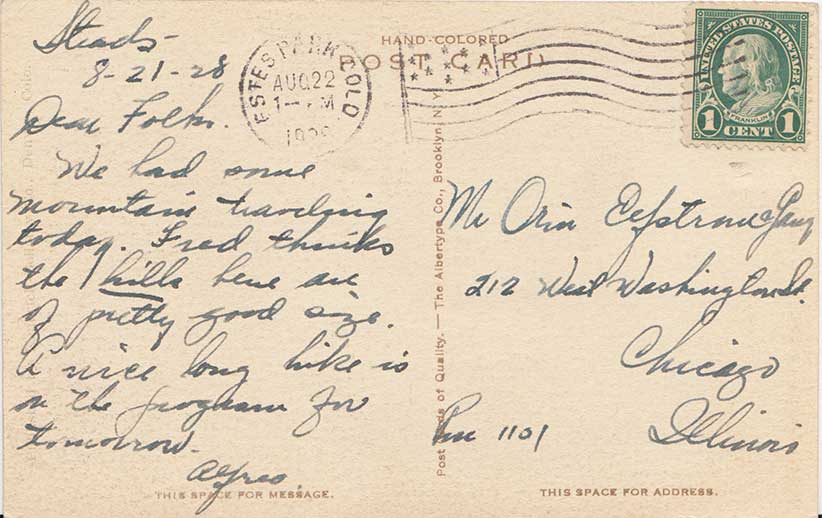 HAND-COLORED
POST CARD
ESTES PARK COLO
AUG 22
1- PM
192
UNITED STATES POSTAGE
FRANKLIN
1 CENT 1
Steads-
8-21-28
Dear Folks.
We had some
mountain traveling
today. Fred thinks
the hills here are
of pretty good size.
A nice long hike is
on the program for
tomorrow.
Alfred.
THIS SPACE FOR MESSAGE.
Post Cards of Quality. — The Albertype Co., Brooklyn, N.Y.
Mr Orin & Gang
212 West Washington St.
Chicago
Illinois
Rm 1101
THIS SPACE FOR ADDRESS.